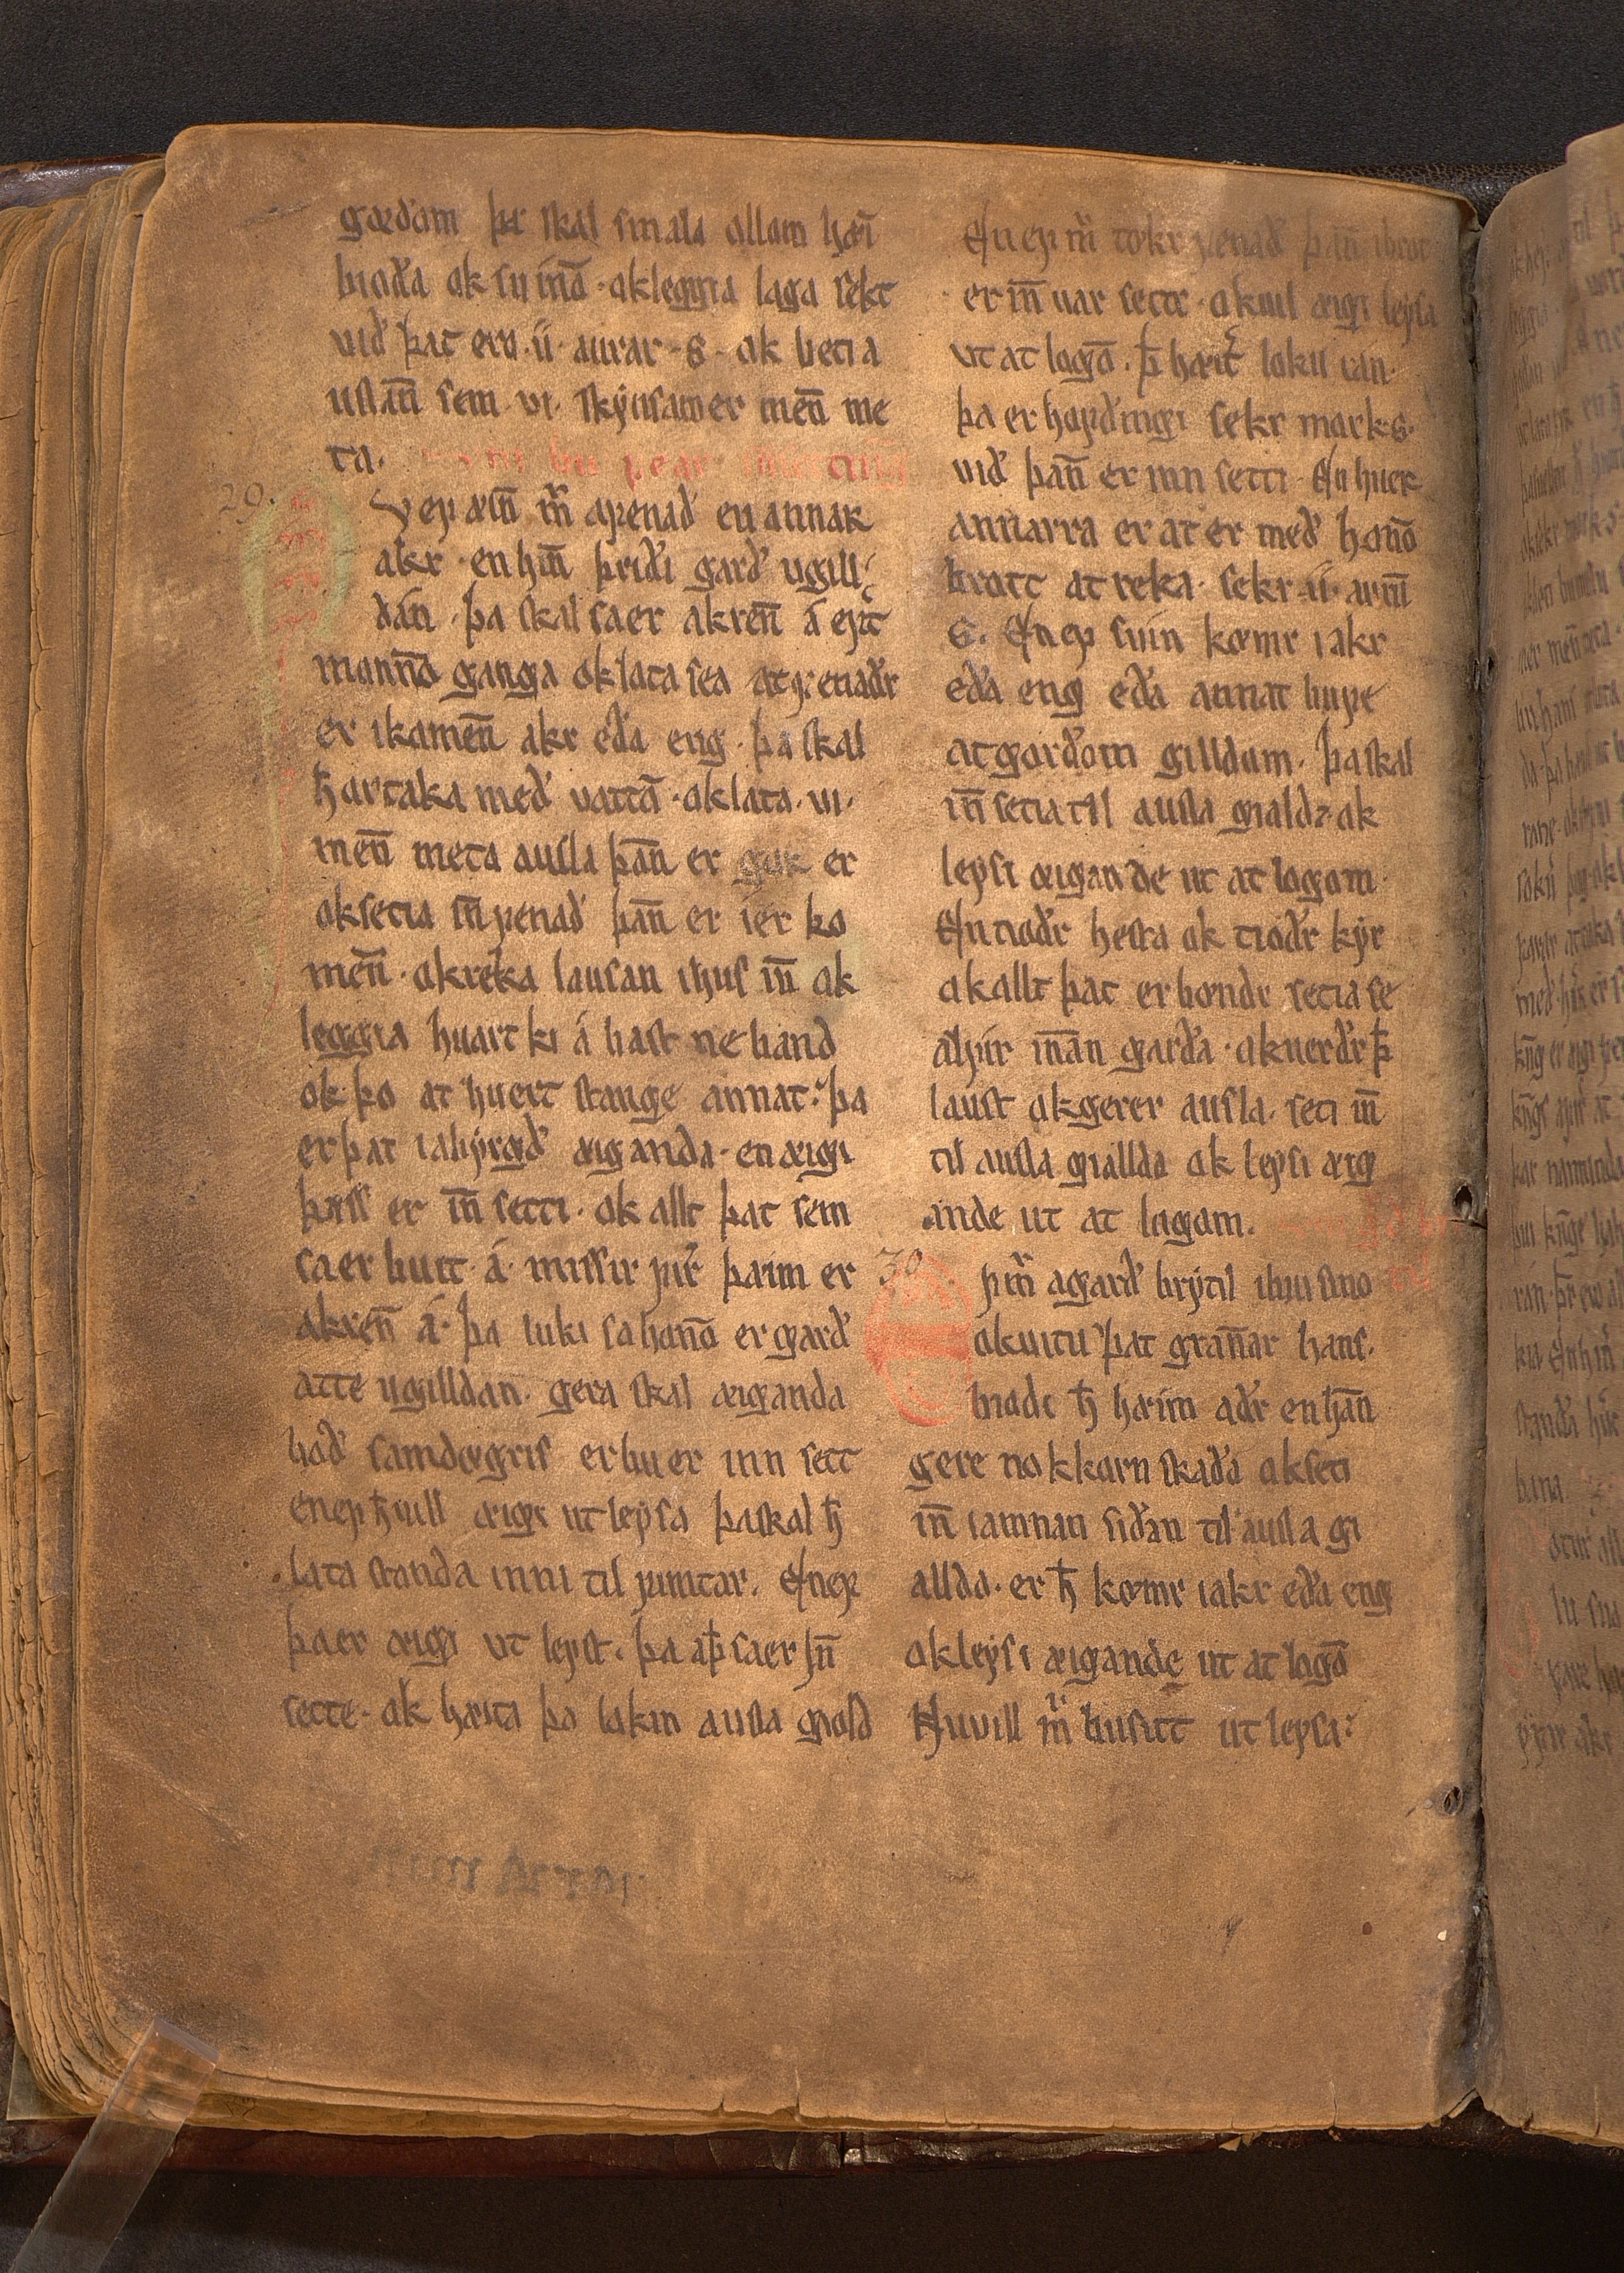 gœdom þa skal smala ollom hæi
bioda ok suinō · ok leggia laga sekt
uid þat ero · ii · aurar · s · ok betia
uslān sem · vi · skynsamer men̄ me
ta·
29.
ef æin̄ m̄ a fenad en annak
akr · en hin̄ þridi gard ugill
dan · þa skal sa er akren̄ á epť
mannō ganga ok lata sea at fenadr
er i komen̄ akr eda eng · þa skal
h̄ ar taka med vattā · ok lata · vi ·
men̄ meta ausla þan̄ er gor er
ok setia in̄ fenad þan̄ er i er ko
men̄ · ok reka lausan i hus in̄ ok
leggia huartki á bast ne band
ok þo at huert stange annat · þa
er þat i abyrgd æiganda · en æigi
þæss er in̄ setti · ok allt þat sem
sa er butt · á · missir firͬ þæim er
akren̄ á · þa luki sa honō er gard
atte ugilldan · gera skal æiganda
bod samdœgris er hu er inn sett
en ef h̄ uill æigi ut leysa þa skal h̄
lata standa inni til fimtar. En ef
þa er æigi ut leyst · þa ab̵ sa er in̄
sette · ok hæiti þo lokin ausla giold
En ef m̄ tokr fenad þan̄ i brot
er in̄ uar settr · ok uil æigi leysa
ut at logō · þ̄ hæiť loku ran ·
þa er hofdingi sekr mark · s ·
uid þan̄ er inn setti · En huer
annarra er at er med honō
brott at reka · sekr · ii · aurū
s · En ef suin kœmr i akr
eda eng eda annat bufe
at gardom gilldum · þa skal
in̄ setia til ausla gialdz · ak
leysi æigande ut at logom
En tiodr hesta ok tiodr kyr
ok allt þat er bondr setia se
alfir innan garda · ok uerdr þ̄
laust ok gerer ausla · seti in̄
til ausla giallda ok leysi æig
ande ut at logom.
30
f m̄ a gard brytil i bui sino
ok uitu þat grannar hans ·
biode h̄ hæim adr en han̄
gere nokkorn skada ok seti
in̄ iamnan sidan til ausla gi
allda · er h̄ kœmr i akr eda eng
ok leysi æigande ut at logō
Nu uill m̄ bufitt ut leysa